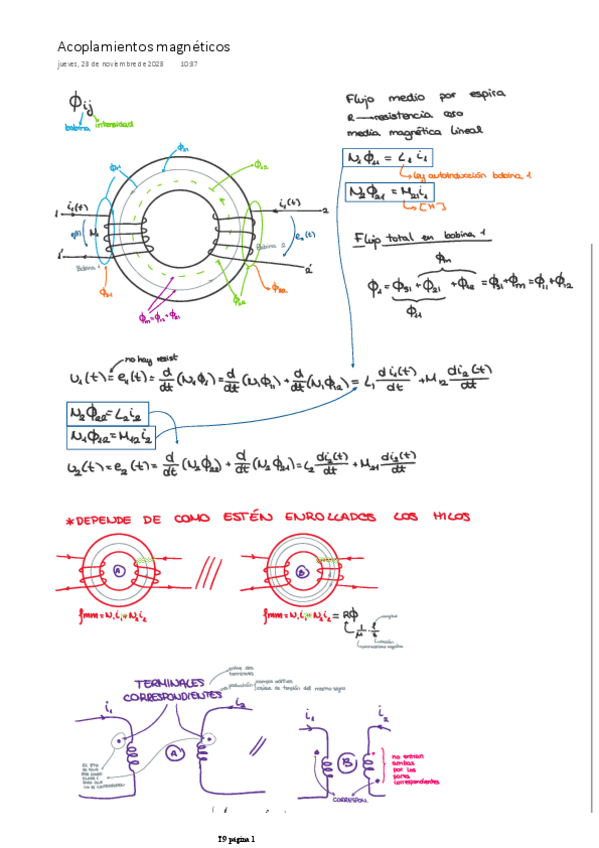 Acoplamientos magnéticos
jueves, 23 de noviembre de 2023 10:37
Φij
bobina intensidad
Flujo medio por espira
R → resistencia
media magnética lineal
N₁Φ₁₁ = L₁i₁
Ley autoinducción bobina 1
N₂Φ₂₁ = M₂₁i₁
[H]
Flujo total en bobina 1
Φm
Φ₁ = Φs₁ + Φ₂₁ + Φ₁₂ = Φs₁ + Φm = Φ₁₁ + Φ₁₂
Φ₁₁
Φ₂₁
Φ₁₂
1 i₁(t)
i₁(t) 2
N₁
e₂(t)
1'
2'
Bobina 1
Bobina 2
Φs₁
Φm = Φ₁₂ + Φ₂₁
no hay resist
u₁(t) = e₁(t) = d/dt (N₁Φ₁) = d/dt (N₁Φ₁₁) + d/dt (N₁Φ₁₂) = L₁ di₁(t)/dt + M₁₂ di₂(t)/dt
N₂Φ₂₂ = L₂i₂
N₁Φ₁₂ = M₁₂i₂
u₂(t) = e₂(t) = d/dt (N₂Φ₂₂) + d/dt (N₂Φ₂₁) = L₂ di₂(t)/dt + M₂₁ di₁(t)/dt
*DEPENDE DE COMO ESTÉN ENROLLADOS LOS HILOS
A
B
TERMINALES
CORRESPONDIENTES
i₁
i₂
A
i₁
i₂
B
CORRESPON.
no entran
ambas
por los
correspondientes
19 página 1